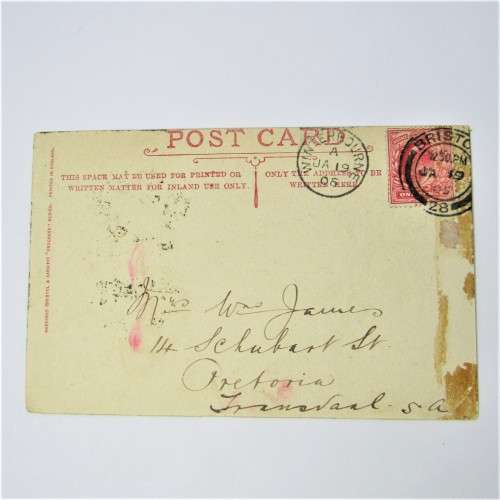 POST CARD
THIS SPACE MAY BE USED FOR PRINTED OR
WRITTEN MATTER FOR INLAND USE ONLY.
ONLY THE ADDRESS TO BE
WRITTEN HERE
WINTERBOURNE
A
JA 19
06
BRISTO
12 50 PM
JA 19
28
PRINTED IN ENGLAND.
Mrs Wm James
14 Schubart St.
Pretoria
Transvaal. S A